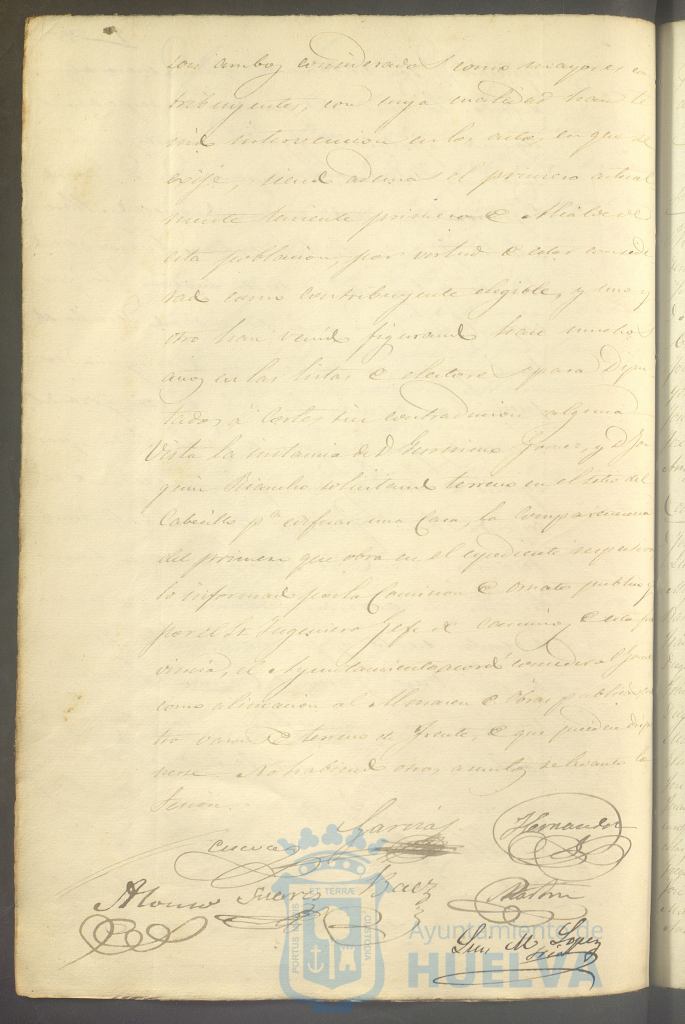 son ambos considerados como mayores con
tribuyentes, con cuya cualidad han te
nido intervencion en los actos, en que se
exije, siendo ademas el primero actual
mente teniente primero de Alcalde de
esta poblacion, por virtud de estar conside
rado como contribuyente eligible, y uno y
otro han venido figurando hace muchos
años en las listas de electores para Dipu
tados á Cortes sin contradiccion alguna
Vista la instancia de D. Geronimo Gomez, y D. Joa
quin Riancho solicitando terreno en el sitio del
Cabecillo pa edificar una Casa, la comparecencia
del primero que obra en el espediente respectivo
lo informado por la Comision de Ornato publico y
por el Sr Ingeniero Gefe de Caminos de esta pro
vincia, el Ayuntamiento acordó conceder al
como alineacion al Almacen de Obras publicas
tro varas de terreno de frente, de que pueden dispo
nerse. No habiendo otros asuntos se levantó la
Sesion.
Garcia
Hernandez
Cuevas
Alonso
Suarez
Baez
Martin
Luis M. Lopez
PORTUS MARIS ET TERRÆ CUSTODIA
Ayuntamiento de
HUELVA